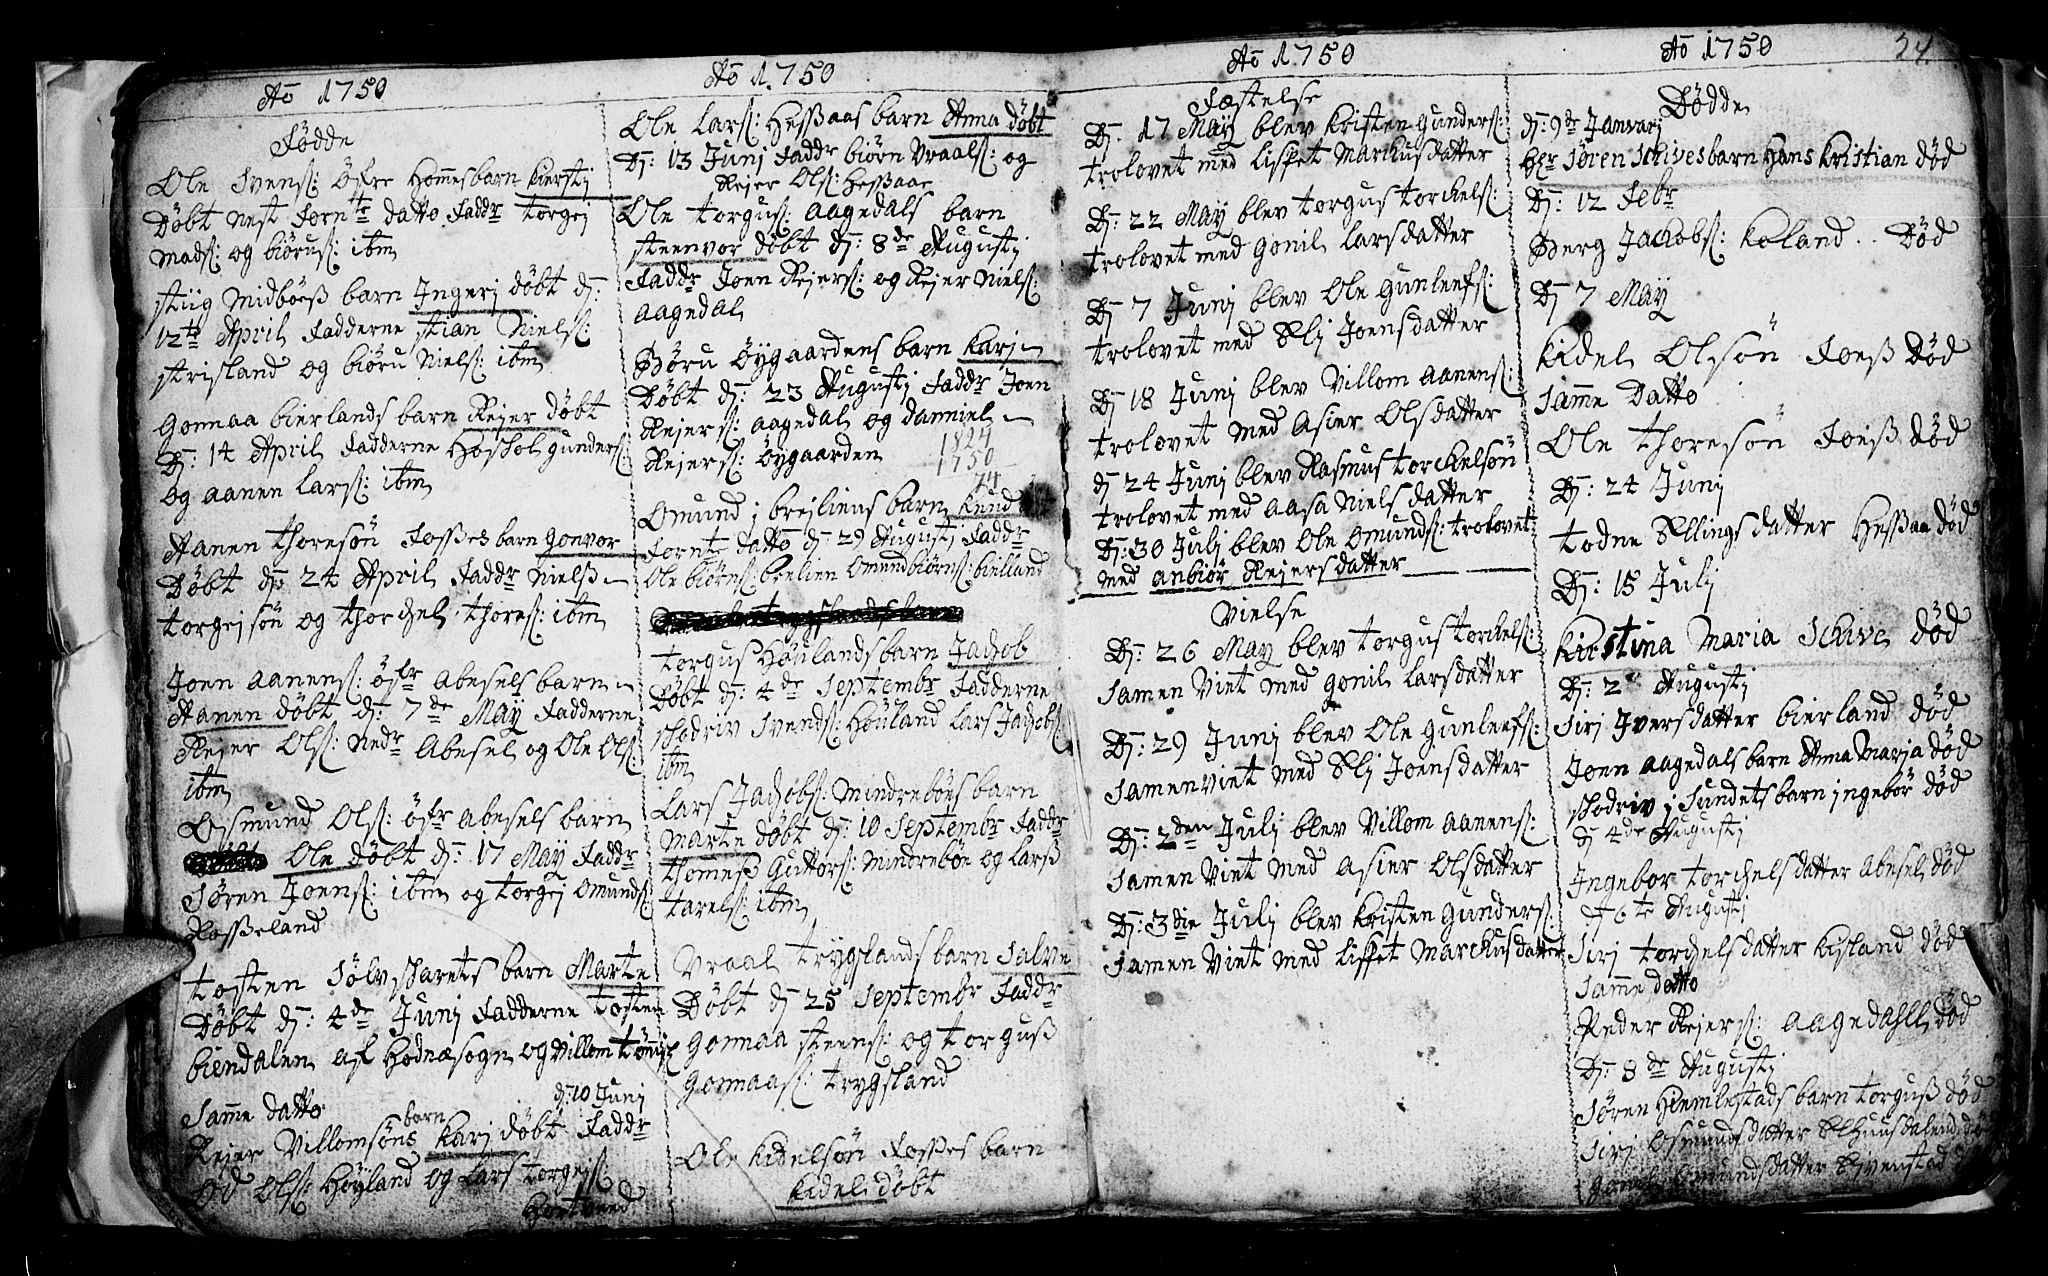 Aō 1750
Fødde
Ole Svens: Öfre Hommes barn Kiersti
Døbt nest forn:te datto Faddr torgej
Mads: og biøru s: ibm
Stiig Midböeß barn Ingerj døbt d:
12te April Fadderne Stian Niels:
Strisland og biøru Niels: ibm
Gonnaa bierlands barn Rejer døbt
D: 14 April Fadderne Høskol gunders:
og aanen Lars: ibm
Aanen thoresön Fosses barn gonvor
Døbt d: 24 April Faddr Nielß
torgejsön og thorchel thores: ibm
Joen aanens: öfr Abesels barn
Aanen døbt d: 7de May Fadderne
Rejer Ols: Nedr Abesel og Ole Ols:
ibm
Osmund Ols: öfr Abesels barn
Ole døbt d: 17 May Faddr
Søren Joens: ibm og torgej Omunds:
Rosseland
tosten Sølvskarets barn Marte
Døbt d: 4de Junj Fadderne tosten
biendalen af Hodnæsogn og Villom
Samme datto d: 10 Junj
Rejer Villomsöns barn Karj döbt Faddr
Ols: Höyland og Lars torgejs:
Hortveed
Aō 1750
Ole Lars: Heßaas barn Anna døbt
D: 13 Junj Faddr biøön Vraals: og
Rejer Ols: Heßaae
Ole torgus: aagedals barn
Steenvor döbt d: 8de Augustj
Faddr Joen Rejers: og Rejer Niels:
aagedal
Böru Öygaardens barn Karj
Döbt d: 23 Augustj Faddr Joen
Rejers: aagedal og danniel
Rejers: Öygaarden
1824
1750
74
Omund j brejliens barn Knud
Fornte datto d: 29 Augustj Faddr
Ole biörns: brelien Omund biörns: bieliand
torgus Höulands barn Jachob
Döbt d: 4de Septembr Fadderne
Skodriv Svends: Höuland Lars Jachobs:
ibm
Lars Jachobs: Mindreböes barn
Marte döbt d: 10 Septembr Faddr
thomeß Guttors: Mindreböe og Larß
tarels: ibm
Vraal tryglands barn Salve
Döbt d: 25 Septembr Faddr
Gonnaa Steens: og torguß
Gonnaas: trygsland
Ole Kidelsön Fosses barn
Kidel döbt
Aō 1750
Festelse
D: 17 May blev Kristen Gunders:
trolovet med Lisbet Marckusdatter
D: 22 May blev torgus torckels:
trolovet med Gonil Larsdatter
D: 7 Junj blev Ole Gunleefs:
trolovet med Elj Joensdatter
D: 18 Junj blev Villom aanens:
trolovet med Asier Olsdatter
d: 24 Junj blev Rasmus torckelsön
trolovet med Aasa Nielsdatter
D: 30 Julj blev Ole Omunds: trolovet
med Anbiör Rejersdatter
Vielse
D: 26 May blev torgus torckels:
Samen Viet med Gonil Larsdatter
D: 29 Junj blev Ole Gunleefs:
Samen viet med Elj Joensdatter
D: 2den Julj blev Villom aanens:
Samen Viet med Asier Olsdatter
D: 3die Julj blev Kristen Gunders:
Samen Viet med Lisbet Marckusdatter
Aō 1750
34
Dødde
d: 9de Janvarj
Søren Schives barn Hans Kristian död
D: 12 Febr
Berg Jackobs: Keland .. Död
D: 7 May
Kidel Olsön Foeß Död
Samme Datto
Ole thoresön Foeß död
D: 24 Junj
todne Ellingsdatter Heßaa död
D: 15 Julj
Kirstina Maria Schive död
D: 2 Augustj
Sirj Iversdatter bierland död
Joen aagedals barn Anna Marja död
Skodriv j Sundets barn jngebör död
d: 4de Augustj
Ingebor torchelsdatter Abesel död
d 6te Augustj
Sirj torchelsdatter Kisland död
Samme datto
Reder Rejers: aagedahll död
D: 8de Augustj
Søren Hiemlestads barn torguß död
Sirj Osmundsdatter